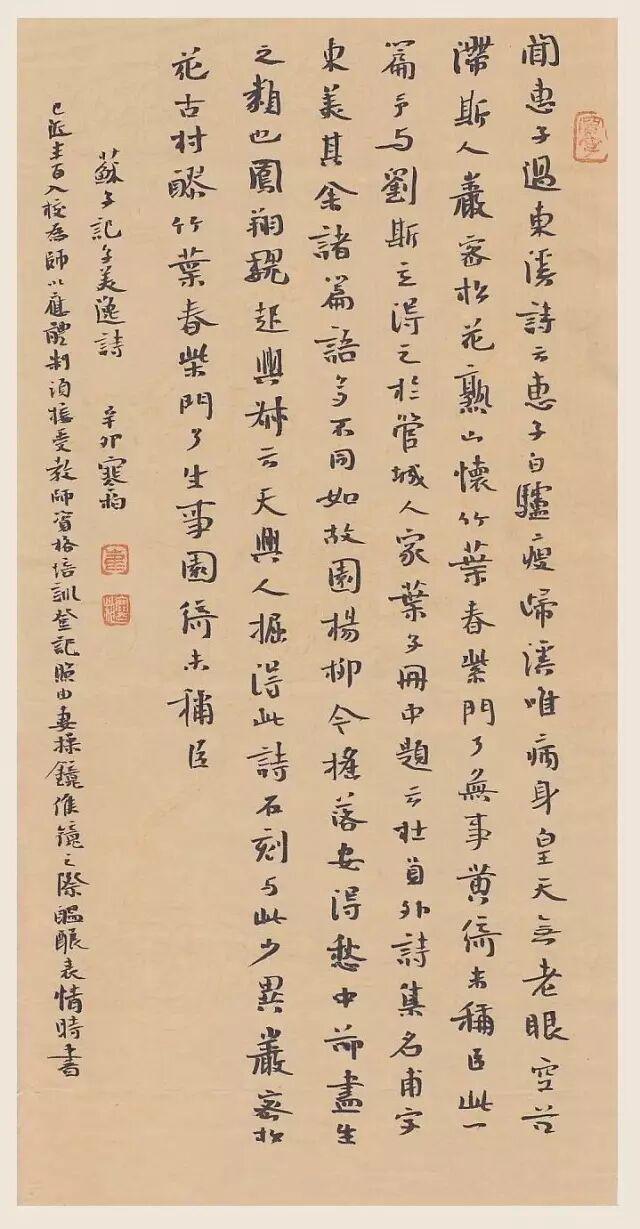 聞惠子過東溪詩云惠子白驢瘦歸溪唯病身皇天無老眼空谷
滯斯人巖密松花熟山懷竹葉春柴門了無事黃綺未稱臣此一
篇予与劉斯立得之於管城人家葉子冊中題云杜員外詩集名甫字
東美其舍諸篇語多不同如故園楊柳今搖落安得愁中却盡生
之類也鳳翔魏起興叔云天興人掘得此詩石刻与此少異巖密松
花古村醪竹葉春柴門了生事園綺未稱臣
蘇子記子美逸詩 辛卯寒
已近半百入校為師以應體制須接受教師資格培訓登記照由妻操鏡催鏡之際醞釀表情時書